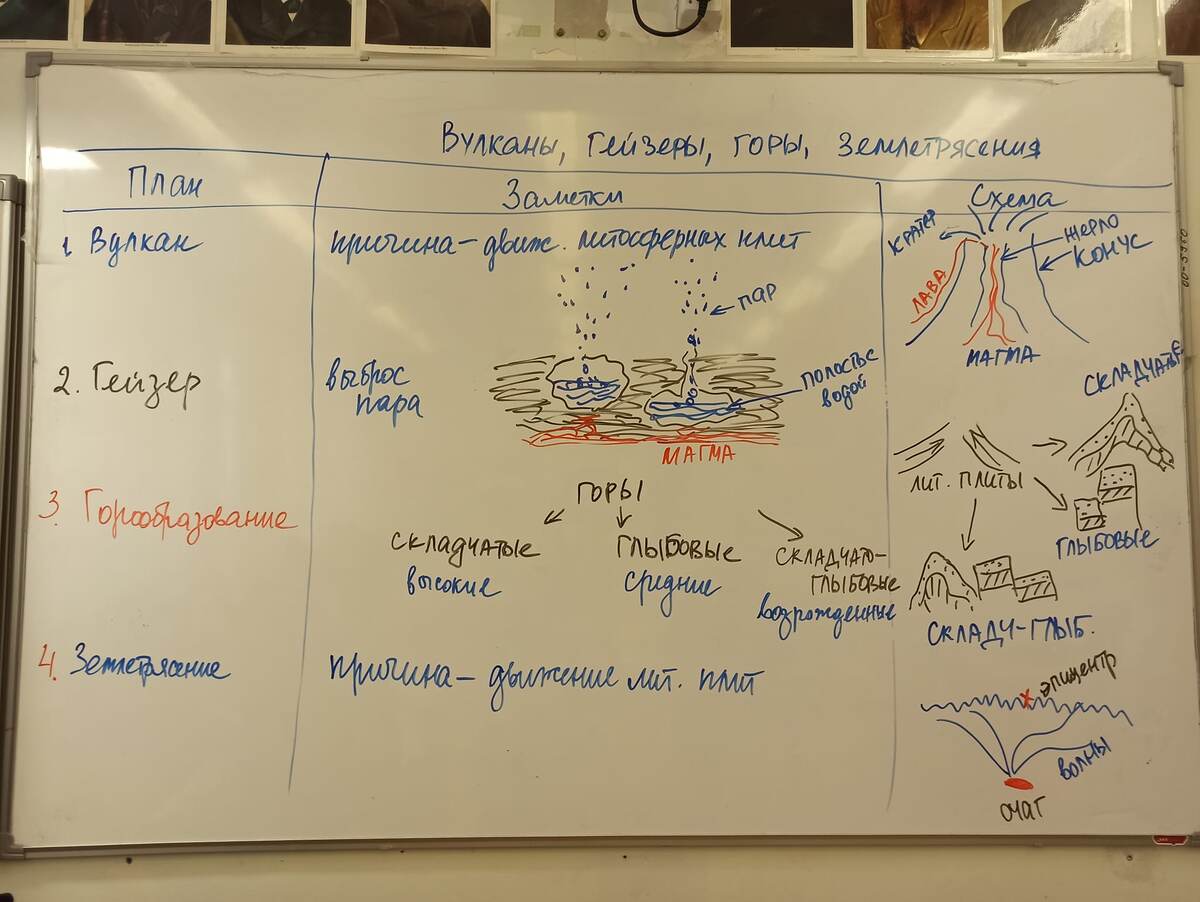 Вулканы, Гейзеры, горы, Землетрясения
План
Заметки
Схема
1. Вулкан
причина – движ. литосферных плит
кратер
жерло
конус
лава
МАГМА
2. Гейзер
выброс
пара
пар
полость с
водой
МАГМА
складчатые
лит. плиты
глыбовые
складч-глыб.
3. Горообразование
горы
складчатые
высокие
глыбовые
средние
складчато-
глыбовые
возрожденные
4. Землетрясение
причина – движение лит. плит
эпицентр
волны
очаг